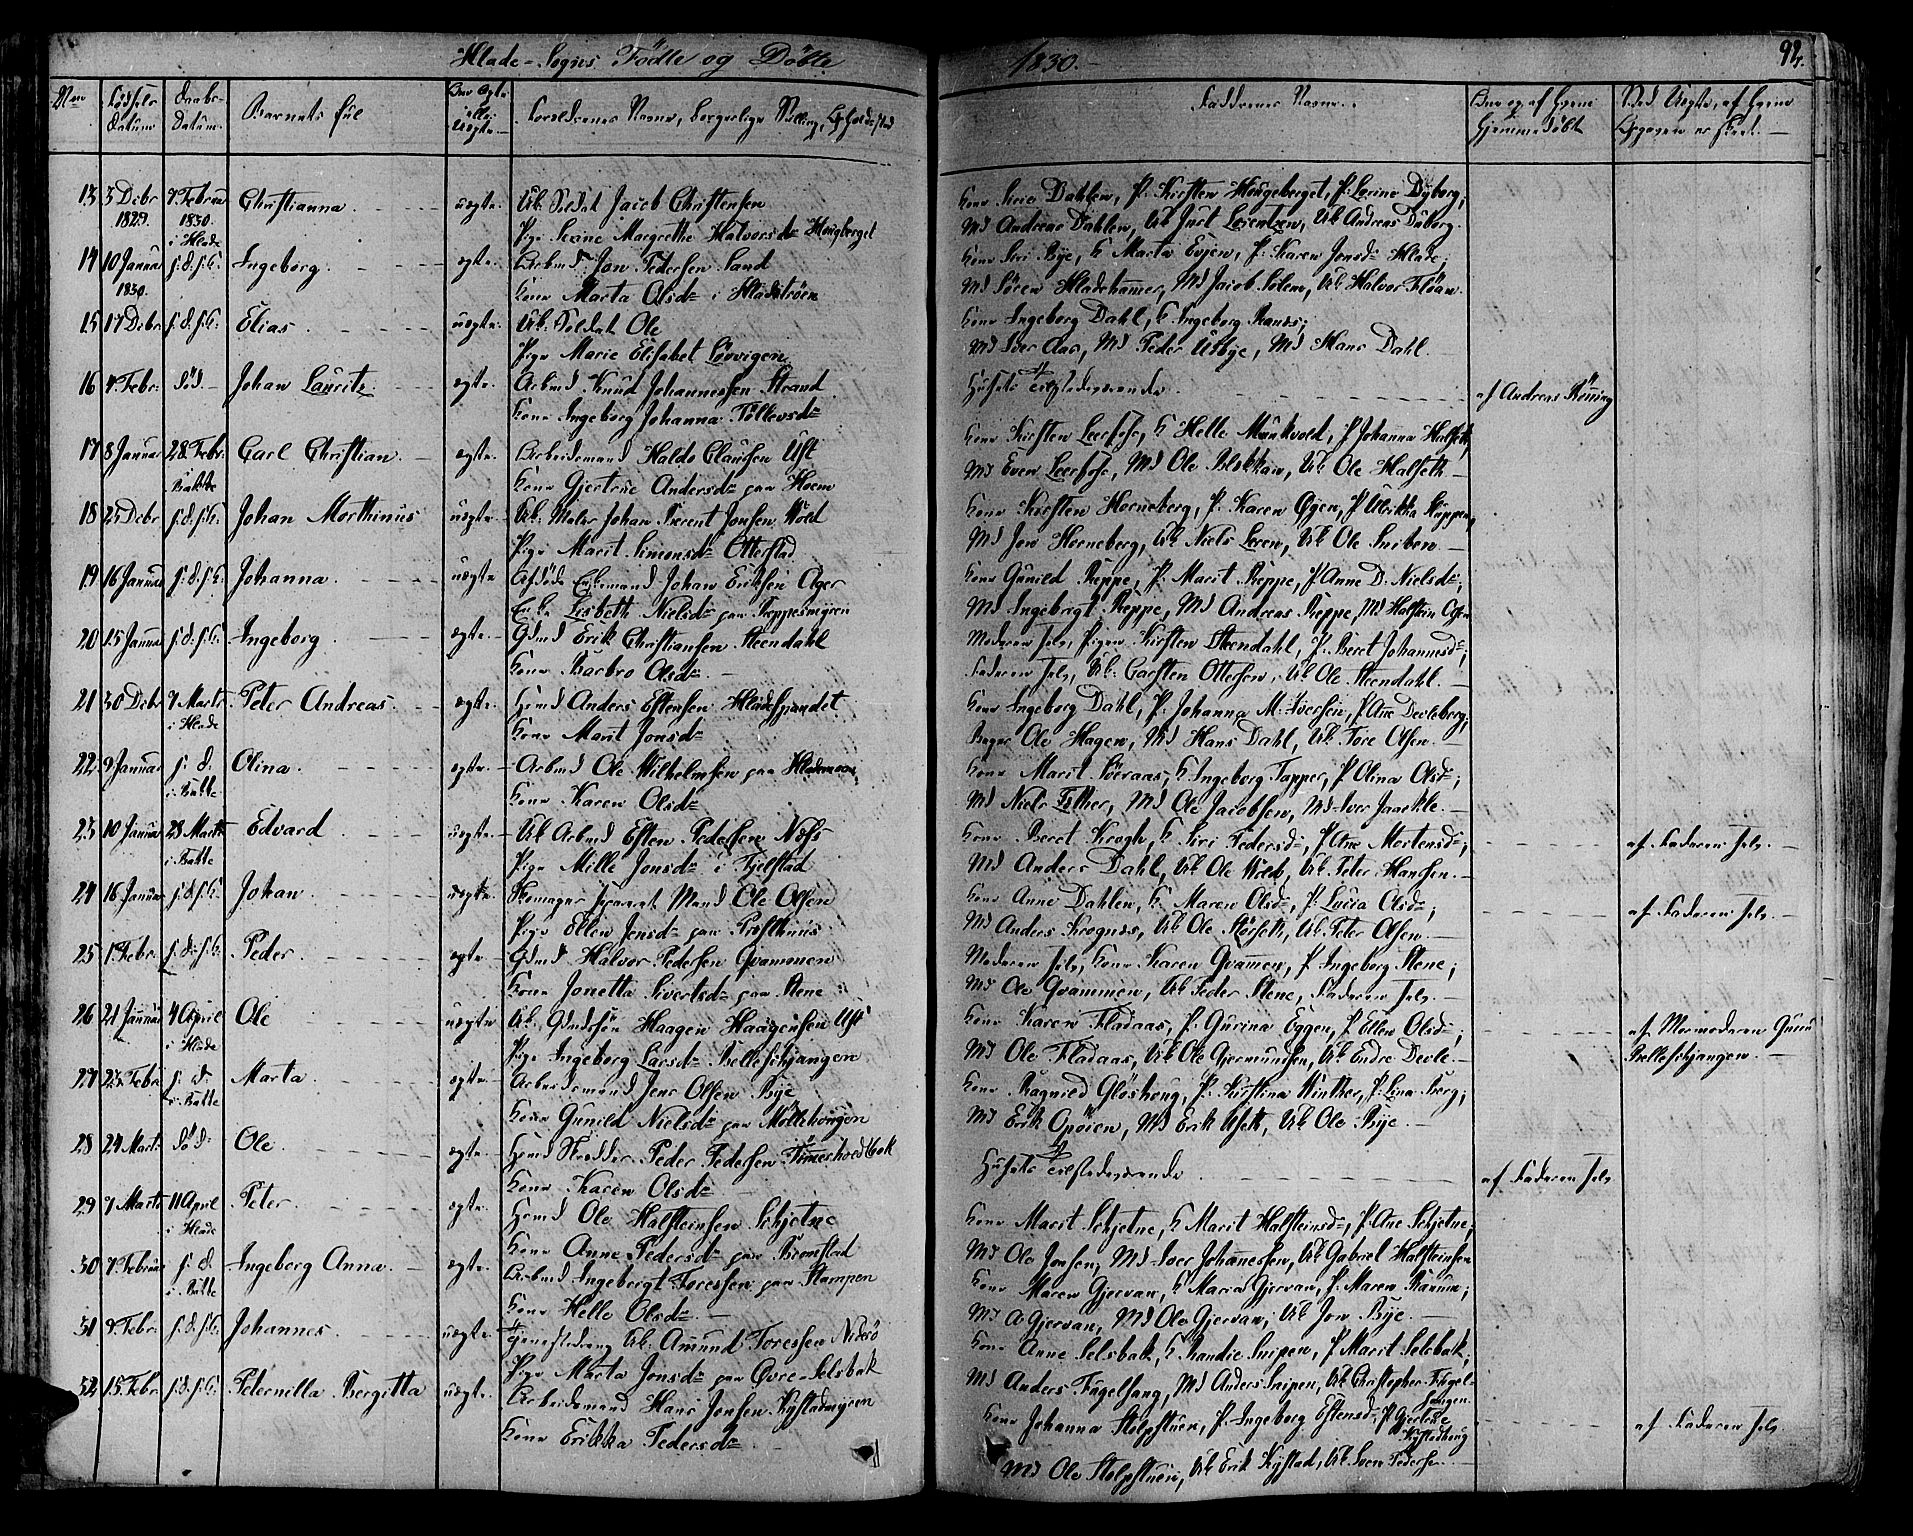 Hlade-Sogns Födte og Döbte
1830.
94.
Nm
Födsels Datum
Daabs Datum
Barnets fulde
Om Ægte eller Uægte
Foreldrenes Navne, borgerlige Stilling, Opholdssted
Faddernes Navne
Om og af hvem Hjemmedöbt
Ved Uægte, af hvem Opgaven er skeet.
13 3 Debr 1829. 7 Februar 1830. i Hlade Christianna uægte Uk. Soldat Jacob Christensen
Pige Sexine Margrethe Halvorsdr Hougberget
Kone Siri Dahlen, P. Kirsten Hougeberget, P. Lorine Dyborg,
Md Andreas Dahlen, Uk Just Lorentzen, Uk Andreas Duborg.
14 10 Januar 1830. s. d. s. K. Ingeborg ægte Arbmd Jon Pedersen Sand
Kone Marta Olsdr i Hladstrøen
Kone Siri Bye, K Marta Evjen, P. Karen Jonsdr Hlade,
Md Sören Hladehamer, Md Jacob Solem, Uk Halvor Fløan.
15 17 Debr s. d. s. K. Elias uægte Uk. Soldat Ole
Pige Marie Elisabet Lövvigen
Kone Ingeborg Dahl, K. Ingeborg Ranes,
Md Iver Aas, Md Peder Utbye, Md Hans Dahl.
16 4. Febr. död Johan Lauritz ægte Arbmd Knud Johannessen Strand
Kone Ingeborg Johanna Tollevsdr
Husets Tilstedeværende
af Andreas Rönning
17 8 Januar 28 Febr. Bakke Carl Christian ægte Arbeidsmand Haldo Clausen Ust
Kone Gjertrue Andersdr paa Hoem
Kone Kirsten Leerfose, K Helle Munkvold, P Johanna Halseth,
Md Even Leerfose, Md Ole Blekkan, Uk Ole Halseth
18 25 Debr s. d. s. K. Johan Morthinus uægte Uk. Maler Johan Brecent Jonsen Wold
Pige Marit Simonsdr Otterstad
Kone Kirsten Horneberg, P. Karen Øyen, P Ulrikka Kuppen,
Md Jon Horneberg, Uk Niels Leren, Uk Ole Sniben
19 16 Januar s. d. s. K. Johanna uægte Afdöde Enkemand Johan Eriksen Ager
Enke Lisbeth Nielsdr paa Reppesmyren
Kone Gunild Reppe, P. Marit Reppe, P Anne D. Nielsdr,
Md Ingebrigt Reppe, Md Andreas Reppe, Md Halstein Olsen
20 15 Januar s. d. s. K. Ingeborg ægte Gdmd Erik Christiansen Steendahl
Kone Barbro Olsdr
Moderen selv, Pigen Kirsten Steendahl, P. Beret Johannesdr,
Faderen selv, Uk. Carsten Ottersen, Uk Ole Steendahl.
21 30 Debr 7 Marts i Hlade Peter Andreas ægte Hmd Anders Estensen Hladespandet
Kone Marit Jonsdr
Kone Ingeborg Dahl, P. Johanna M. Iversen, P. Ane Devleberg,
Bager Ole Hagen, Md Hans Dahl, Uk. Tore Olsen.
22 9 Januar s. d. i Bakke Olina ægte Arbmd Ole Wilhelmsen paa Hlademoen
Kone Karen Olsdr
Kone Marit Sveraas, K Ingeborg Tapper, P Olina Olsdr,
Md Niels Esther, Md Ole Jacobsen, Md Iver Jaackle.
23 10 Januar 28 Marts i Bakke Edvard uægte Uk Arbmd Esten Pedersen Næss
Pige Mille Jonsdr i Fjelstad
Kone Beret Krogh, K Siri Pedersdr, P Ane Mortensdr,
Md Anders Dahl, Uk Ole Weeb, Uk Peter Hansen.
af Faderen selv
24 16 Januar s. d. s. K. Johan uægte Skomager Separat Mand Ole Olsen
Pige Ellen Jensdr paa Presthuus
Kone Anne Dahlen, K Maren Olsdr, P. Lucia Olsdr,
Md Anders Krognes, Uk Ole Störseth, Uk. Peter Olsen.
af Faderen selv
25 1. Febr. s. d. s. K. Peder ægte Gdmd Halvor Pedersen Qvammen
Kone Jonetta Sivertsdr paa Stene
Moderen selv, Kone Karen Qvammen, P. Ingeborg Stene,
Md Ole Qvammen, Uk Peder Stene, Faderen selv.
26 21 Januar 4 April i Hlade Ole uægte Uk. Gdmdsön Haagen Haagensen Ust
Pige Ingeborg Larsdr Belleschjangen
Kone Karen Fladaas, P. Gurina Eggen, P Ellen Olsdr,
Md Ole Fladaas, Uk Ole Gjermundsen, Uk Endre Devle.
af Mormoderen Guru Belleschjangen.
27 25 Febr s. d. i Bakke Marta ægte Arbeidsmand Jens Olsen Bye
Kone Gunild Nielsdr paa Möllebougen
Kone Ragnild Glöshoug, P. Kirstina Winther, P. Lina Berg,
Md Erik Opöien, Md Erik Useth, Uk Ole Bye.
28 24 Marts död Ole ægte Hmd Skredder Peder Pedersen Fimeshoedbak
Kone Karen Olsdr
Husets Tilstedeværende
af Faderen selv
29 7 Marts 11 April i Hlade Peter ægte Hmd Ole Halsteinsen Schjetne
Kone Anne Pedersdr paa Bromstad
Kone Marit Schjetne, K Marit Halsteinsdr, P. Ane Schjetne,
Md Ole Jonsen, Md Iver Johannessen, Uk Gabriel Halsteinsen
30 7. Februar s. d. i Bakke Ingeborg Anna ægte Arbmd Ingebrigt Toressen paa Stampen
Kone Helle Olsdr
Kone Maren Gjervan, K Maria Gjervan, P. Maren Ranum,
Md A Gjervan, Md Ole Gjervan, Uk Jon Bye.
31 9. Febr. s. d. s. K. Johannes uægte Tjenestedreng Uk. Amund Toressen Niderö
Pige Marta Jonsdr paa Øvre-Selsbak
Kone Anne Selsbak, K Randie Snipen, P Marit Selsbak,
Md Anders Fugelsang, Md Anders Snipen, Uk Christopher Fugelsangen
32 15. Febr s. d. s. K. Peternilla Bergitta uægte Arbeidsmand Hans Jonsen Kystadmyren
Kone Erikka Pedersdr
Kone Johanna Stolpstuen, P. Ingeborg Estensdr, P Gjertrue Kystadhoug
Md Ole Stolpstuen, Uk Erik Kystad, Uk Sven Pedersen
af Faderen selv